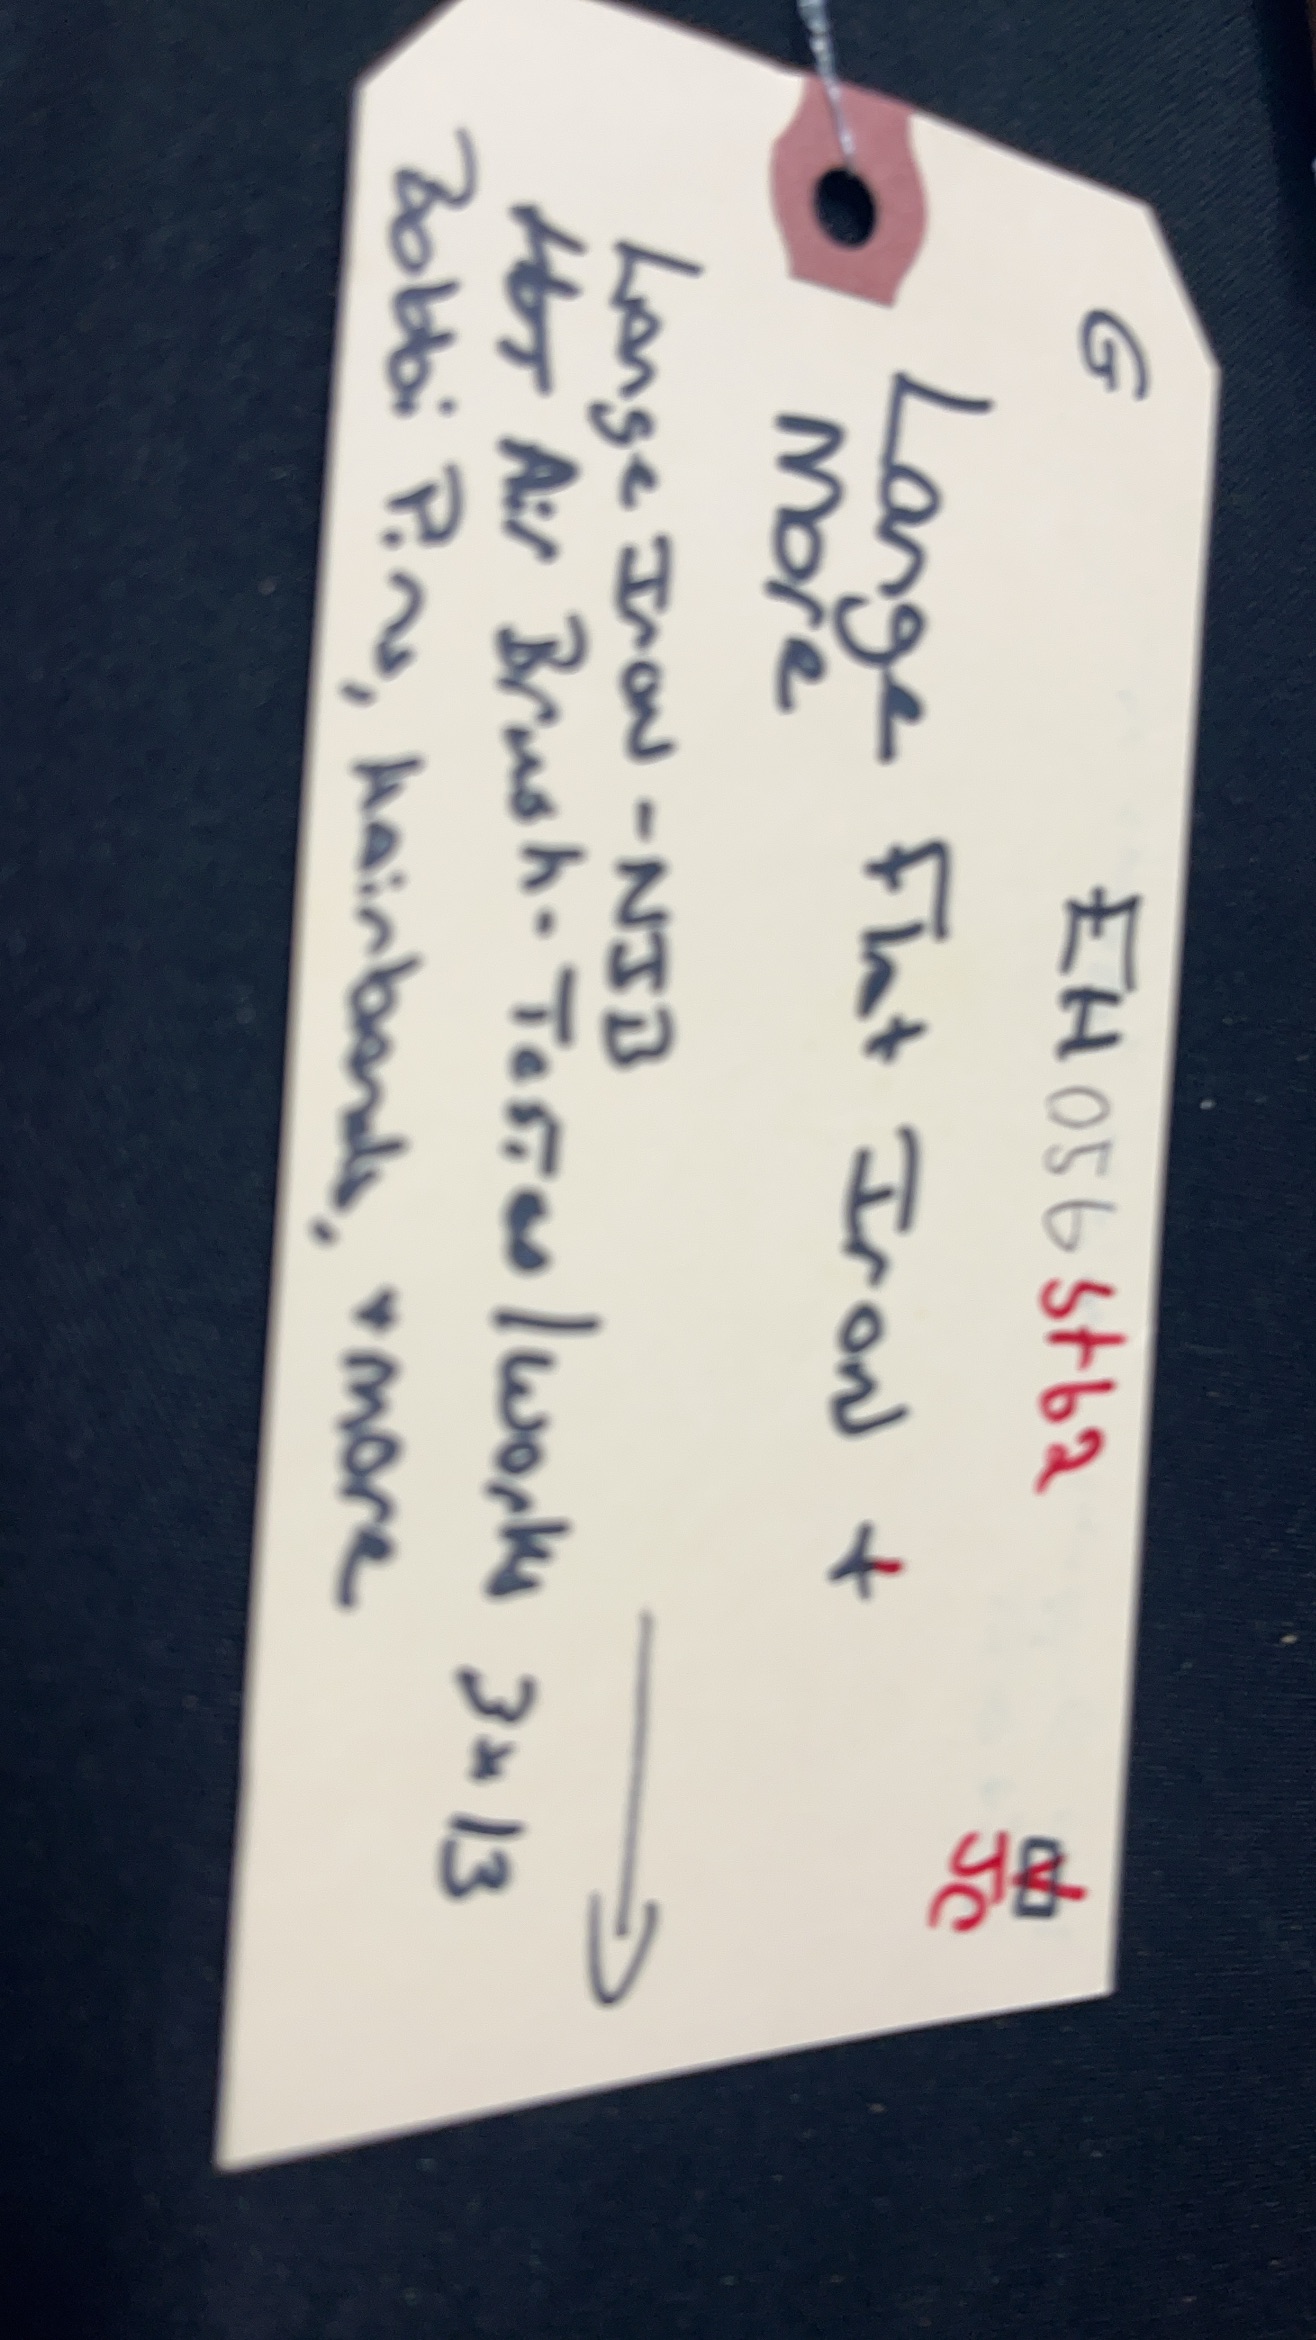 G EH056 St62
Lange Flat Iron +
More
JC
Lange Iron - NIB
Hot Air Brush - Tested/works 3x13
Bobbi Pins, hairbands, + more